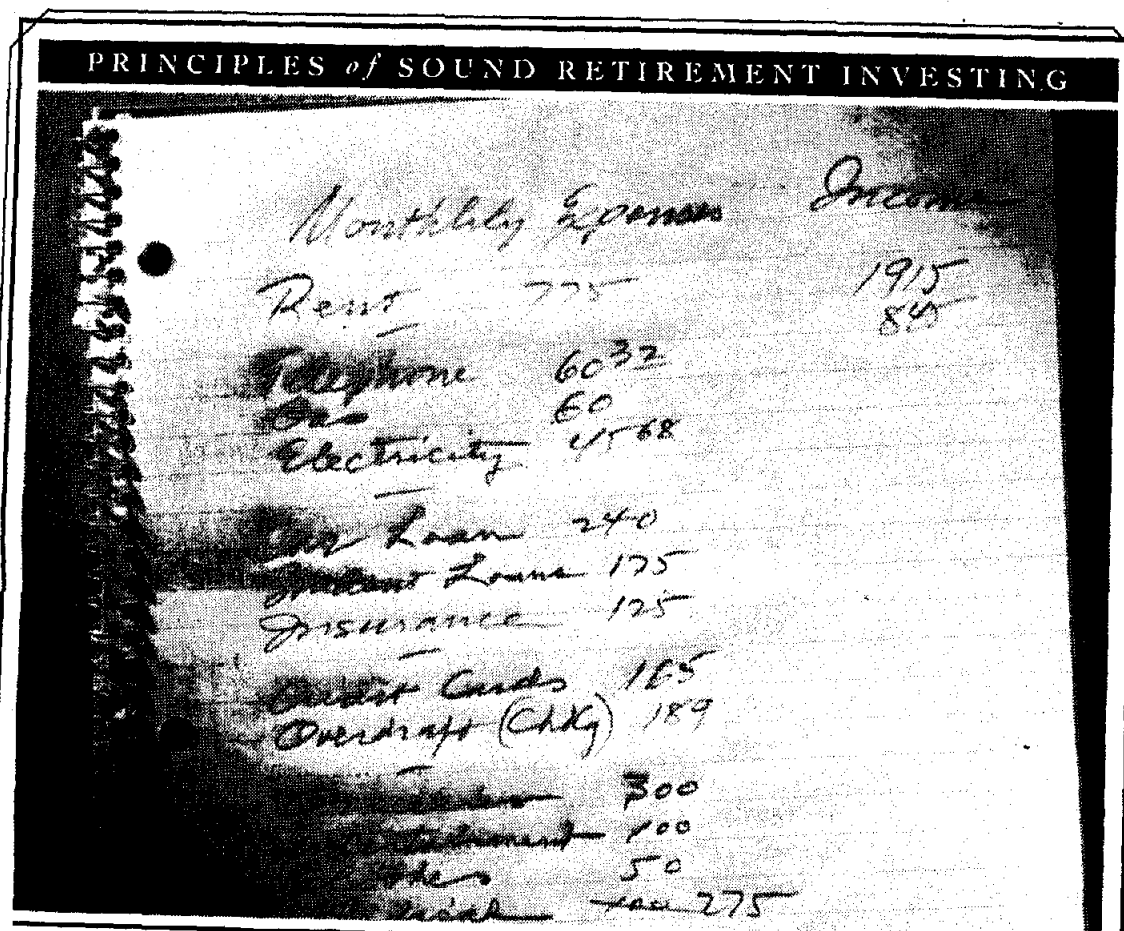 PRINCIPLES of SOUND RETIREMENT INVESTING
Monthlily Expenses Income
Rent 775 1915
845
Telephone 60 32
Gas 60
Electricity 45 68
Car Loan 240
Student Loans 175
Insurance 125
Credit Cards 165
Overdraft (Chkg) 189
300
100
50
275